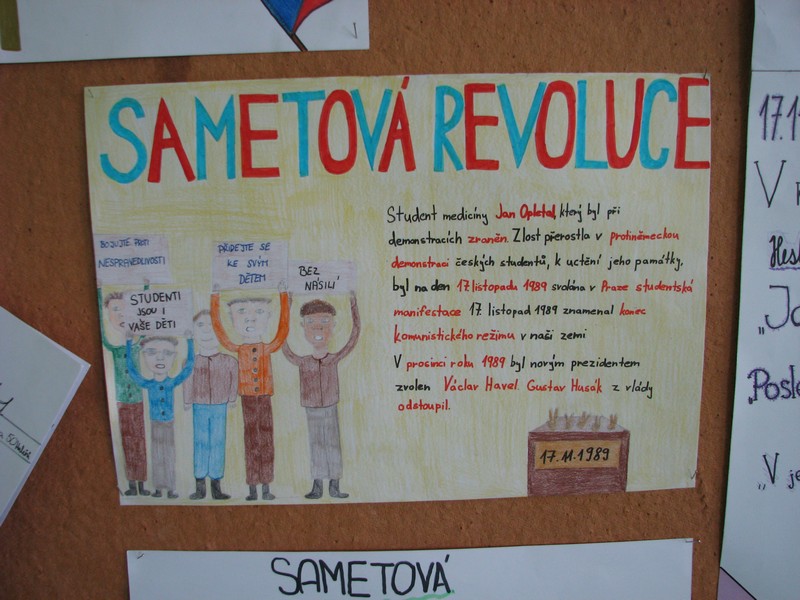 SAMETOVÁ REVOLUCE
BOJUJTE PROTI
NESPRAVEDLIVOSTI
STUDENTI
JSOU I
VAŠE DĚTI
PŘIDEJTE SE
KE SVÝM
DĚTEM
BEZ
NÁSILÍ
Student medicíny Jan Opletal, který byl při
demonstracích zraněn. Zlost přerostla v protiněmeckou
demonstraci českých studentů, k uctění jeho památky,
byl na den 17 listopadu 1989 svolána v Praze studentská
manifestace 17. listopad 1989 znamenal konec
komunistického režimu v naši zemi
V prosinci roku 1989 byl novým prezidentem
zvolen Václav Havel. Gustav Husák z vlády
odstoupil.
17.11.1989
SAMETOVÁ
17.1
V
„V je